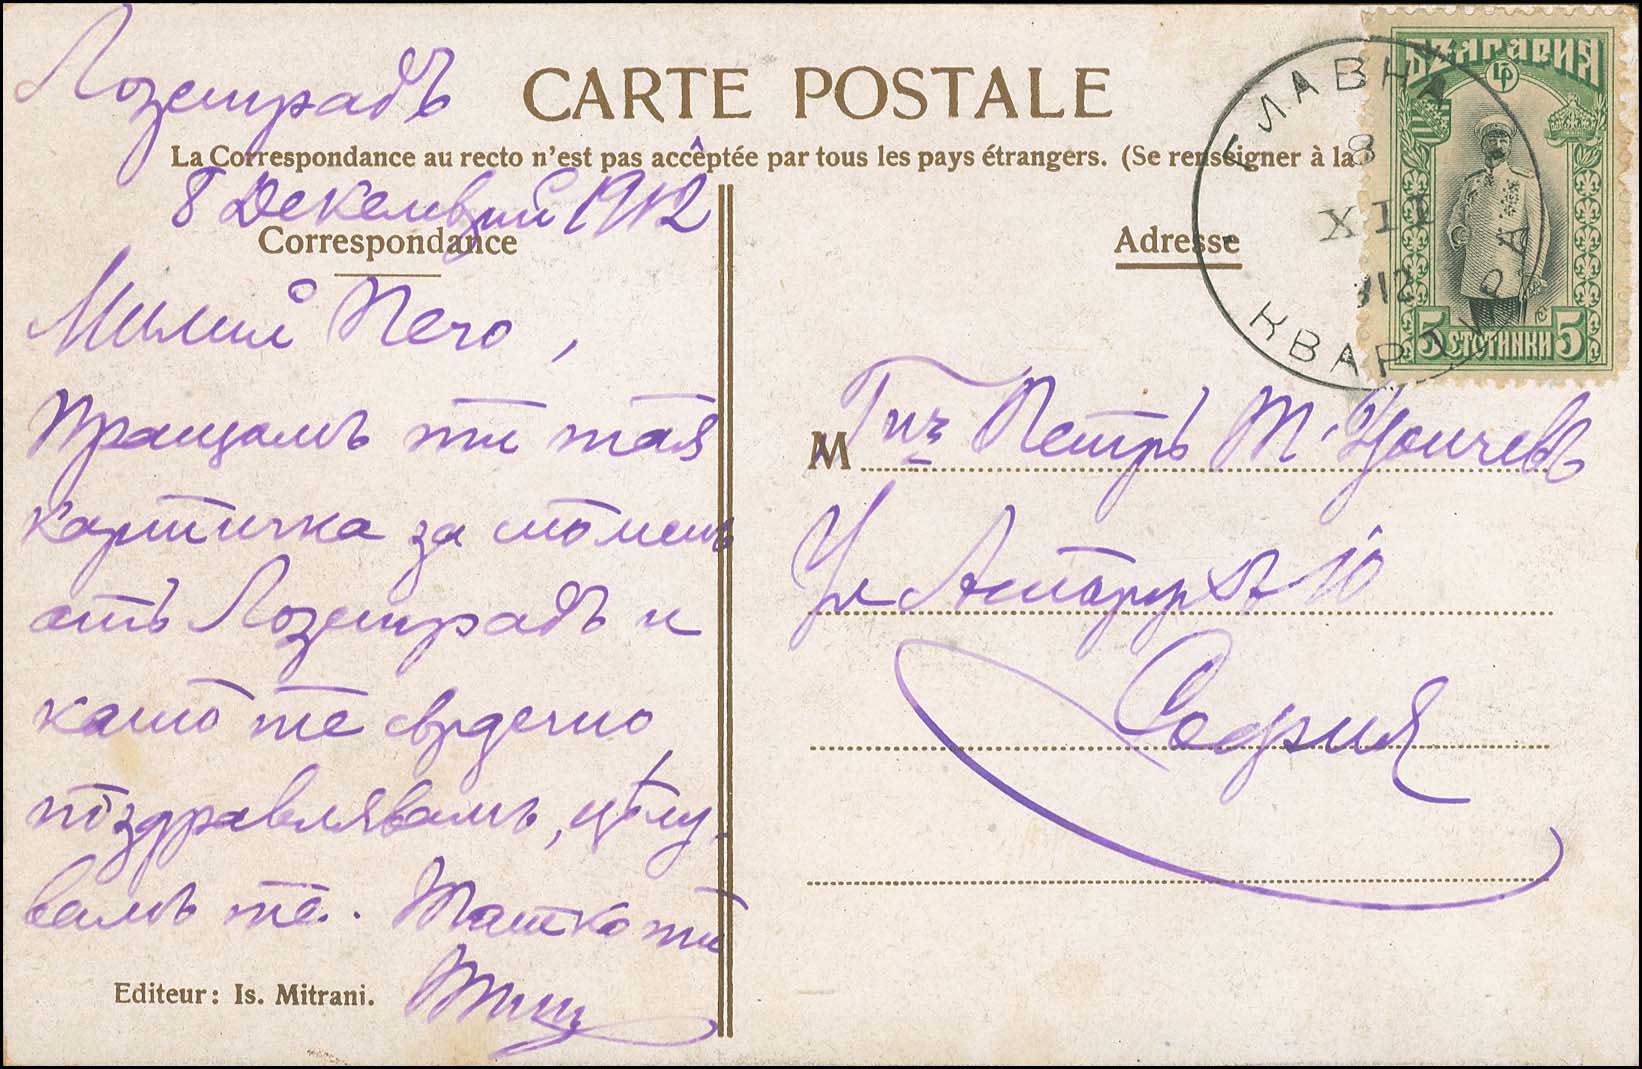 Лозенградъ
CARTE POSTALE
La Correspondance au recto n'est pas accêptée par tous les pays étrangers. (Se renseigner à la
8 Декемврий 1912
Correspondance
Adresse
Милий Печо,
Пращамъ ти тая
картичка за споменъ
отъ Лозенградъ и
като те сърдечно
поздравлявамъ, цѣлу-
вамъ те. Татко ти
Editeur: Is. Mitrani.
БЪЛГАРИЯ
5 СТОТИНКИ 5
ГЛАВНА
8
XII
912
КВАРТИРА
M Г-нъ Петръ Т. Цончевъ
Ул
10
София